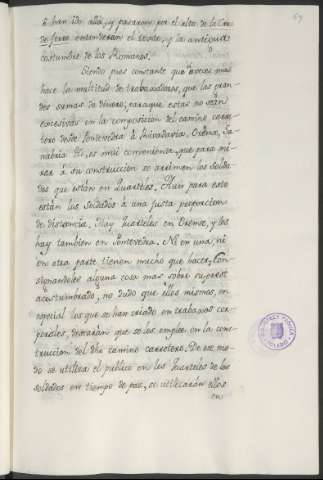 ò han ido allá, y pasaron por el alto de la Cru
de ferro entenderán el texto, y la antigua
costumbre de los Romanos.
Siendo pues constante que à veces mas
hace la multitud de trabaxadores, que las gran-
des sumas de dinero, para que estas no sean
excesivas en la composicion del camino carre-
tero desde Pontevedra à Rivadavia, Orense, Sa-
nabria &c, es mui conveniente, que para mi-
rar à su construccion se arrimen los Solda-
dos que estan en Quarteles. Y aun para esto
estàn los Soldados à una justa proporcion
de distancia. Hay Quarteles en Orense, y los
hay tambien en Pontevedra. Ni en una, ni
en otra parte tienen mucho que hacer. Con-
signandoles alguna cosa mas sobre su prest
acostumbrado, no dudo que ellos mismos, en
especial los que se han criado en trabaxos cor-
porales, desearán que se les emplee en la cons-
truccion del dho camino carretero. De ese mo-
do se utiliza el publico en los Quarteles de los
Soldados en tiempo de paz, se utilizarán ellos
en